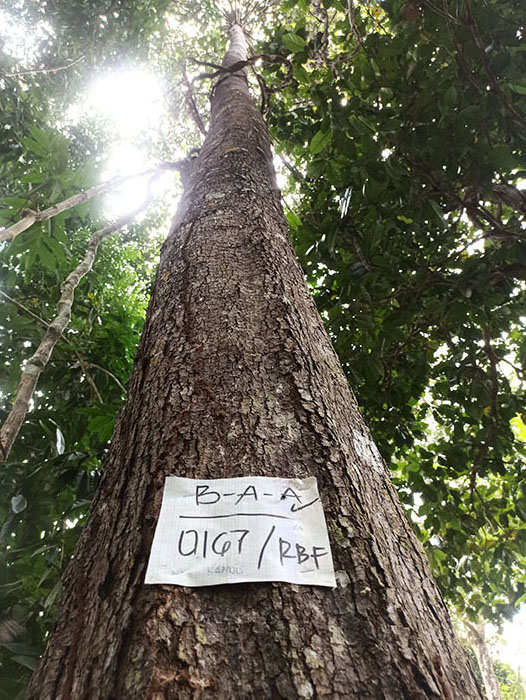 B-A-A
0167/RBF